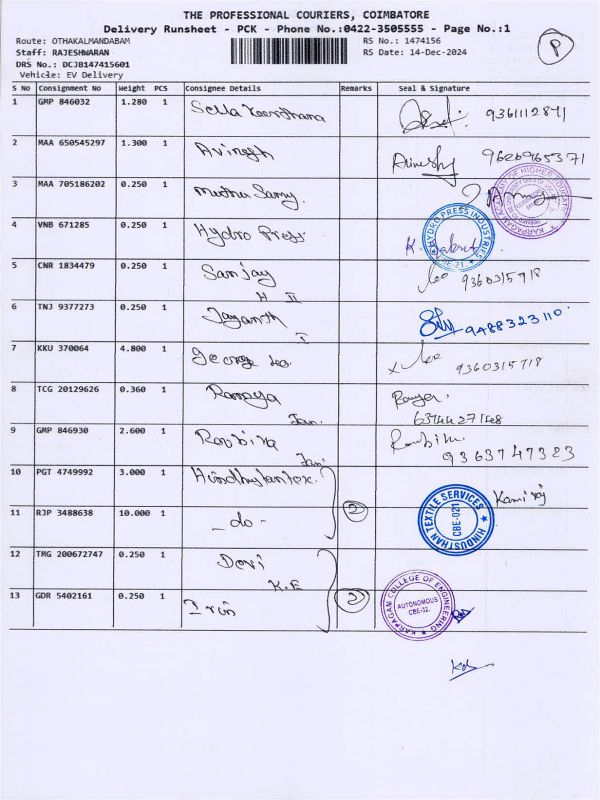 THE PROFESSIONAL COURIERS, COIMBATORE
Delivery Runsheet - PCK - Phone No.:0422-3505555 - Page No.:1
Route: OTHAKALMANDABAM
RS No.: 1474156
P
Staff: RAJESHWARAN
RS Date: 14-Dec-2024
DRS No.: DCJB147415601
Vehicle: EV Delivery
S No Consignment No Weight PCS Consignee Details Remarks Seal & Signature
1 GMP 846032 1.280 1 9361112871
2 MAA 650545297 1.300 1 Avinash Avinash 9626965371
3 MAA 705186202 0.250 1 Muthu Samy
KARPAGAM ACADEMY OF HIGHER EDUCATION
4 VNB 671285 0.250 1 Hydro Press
HYDRO PRESS INDUSTRIES
CBE-21.
5 CNR 1834479 0.250 1 Sanjay Leo 9360315718
H II
6 TNJ 9377273 0.250 1 Jayanth 9488323110
I
7 KKU 370064 4.800 1 George Leo. x Leo 9360315718
8 TCG 20129626 0.360 1 Ramya
Jan. 6374427148
9 GMP 846930 2.600 1
Jan 9363747323
10 PGT 4749992 3.000 1 Kamiraj
HINDUSTHAN TEXTILE SERVICES
CBE-021
11 RJP 3488638 10.000 1 - do - 2
12 TMG 200672747 0.250 1 Devi
K.E
13 GDR 5402161 0.250 1 2
KARPAGAM COLLEGE OF ENGINEERING
AUTONOMOUS
CBE-32.